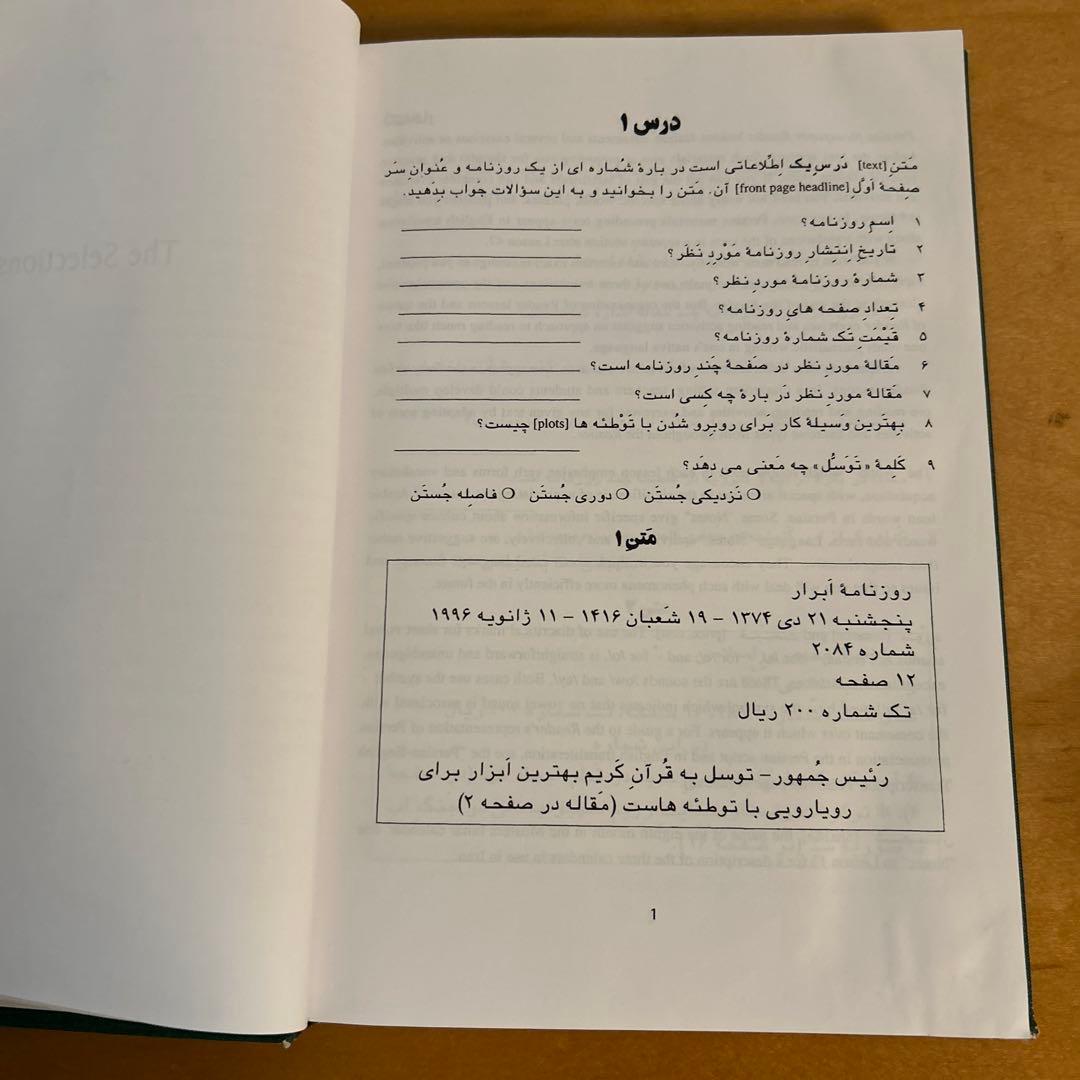 The Selections
درس ۱
مَتن [text] دَرسِ یک اِطِّلاعاتی است در بارهٔ شُماره ای از یک روزنامه و عُنوانِ سَر
صفحهٔ اَوَّلِ [front page headline] آن. مَتن را بخوانید و به این سؤالات جَواب بِدَهید.
۱ اِسمِ روزنامه؟
۲ تاریخِ اِنتِشارِ روزنامهٔ مَوْرِدِ نَظَر؟
۳ شمارهٔ روزنامهٔ موردِ نظر؟
۴ تِعدادِ صفحه هایِ روزنامه؟
۵ قَیْمَتِ تَک شمارهٔ روزنامه؟
۶ مَقالهٔ موردِ نظر در صَفحهٔ چَندِ روزنامه است؟
۷ مَقالهٔ موردِ نظر دَر بارهٔ چه کَسی است؟
۸ بِهتَرین وَسیلهٔ کار بَرای روبرو شُدن با تَوْطئه ها [plots] چیست؟
۹ کَلِمهٔ «تَوَسُّل» چه مَعنی می دِهَد؟
❍ نَزدیکی جُستَن ❍ دوری جُستَن ❍ فاصِله جُستَن
مَتنِ ۱
روزنامهٔ اَبرار
پنجشنبه ۲۱ دی ۱۳۷۴ – ۱۹ شَعبان ۱۴۱۶ – ۱۱ ژانویه ۱۹۹۶
شماره ۲۰۸۴
۱۲ صفحه
تک شماره ۲۰۰ ریال
رَئیس جُمهور – توسل به قُرآنِ کَریم بهترین اَبزار برای
رویارویی با توطئه هاست (مَقاله در صفحه ۲)
1